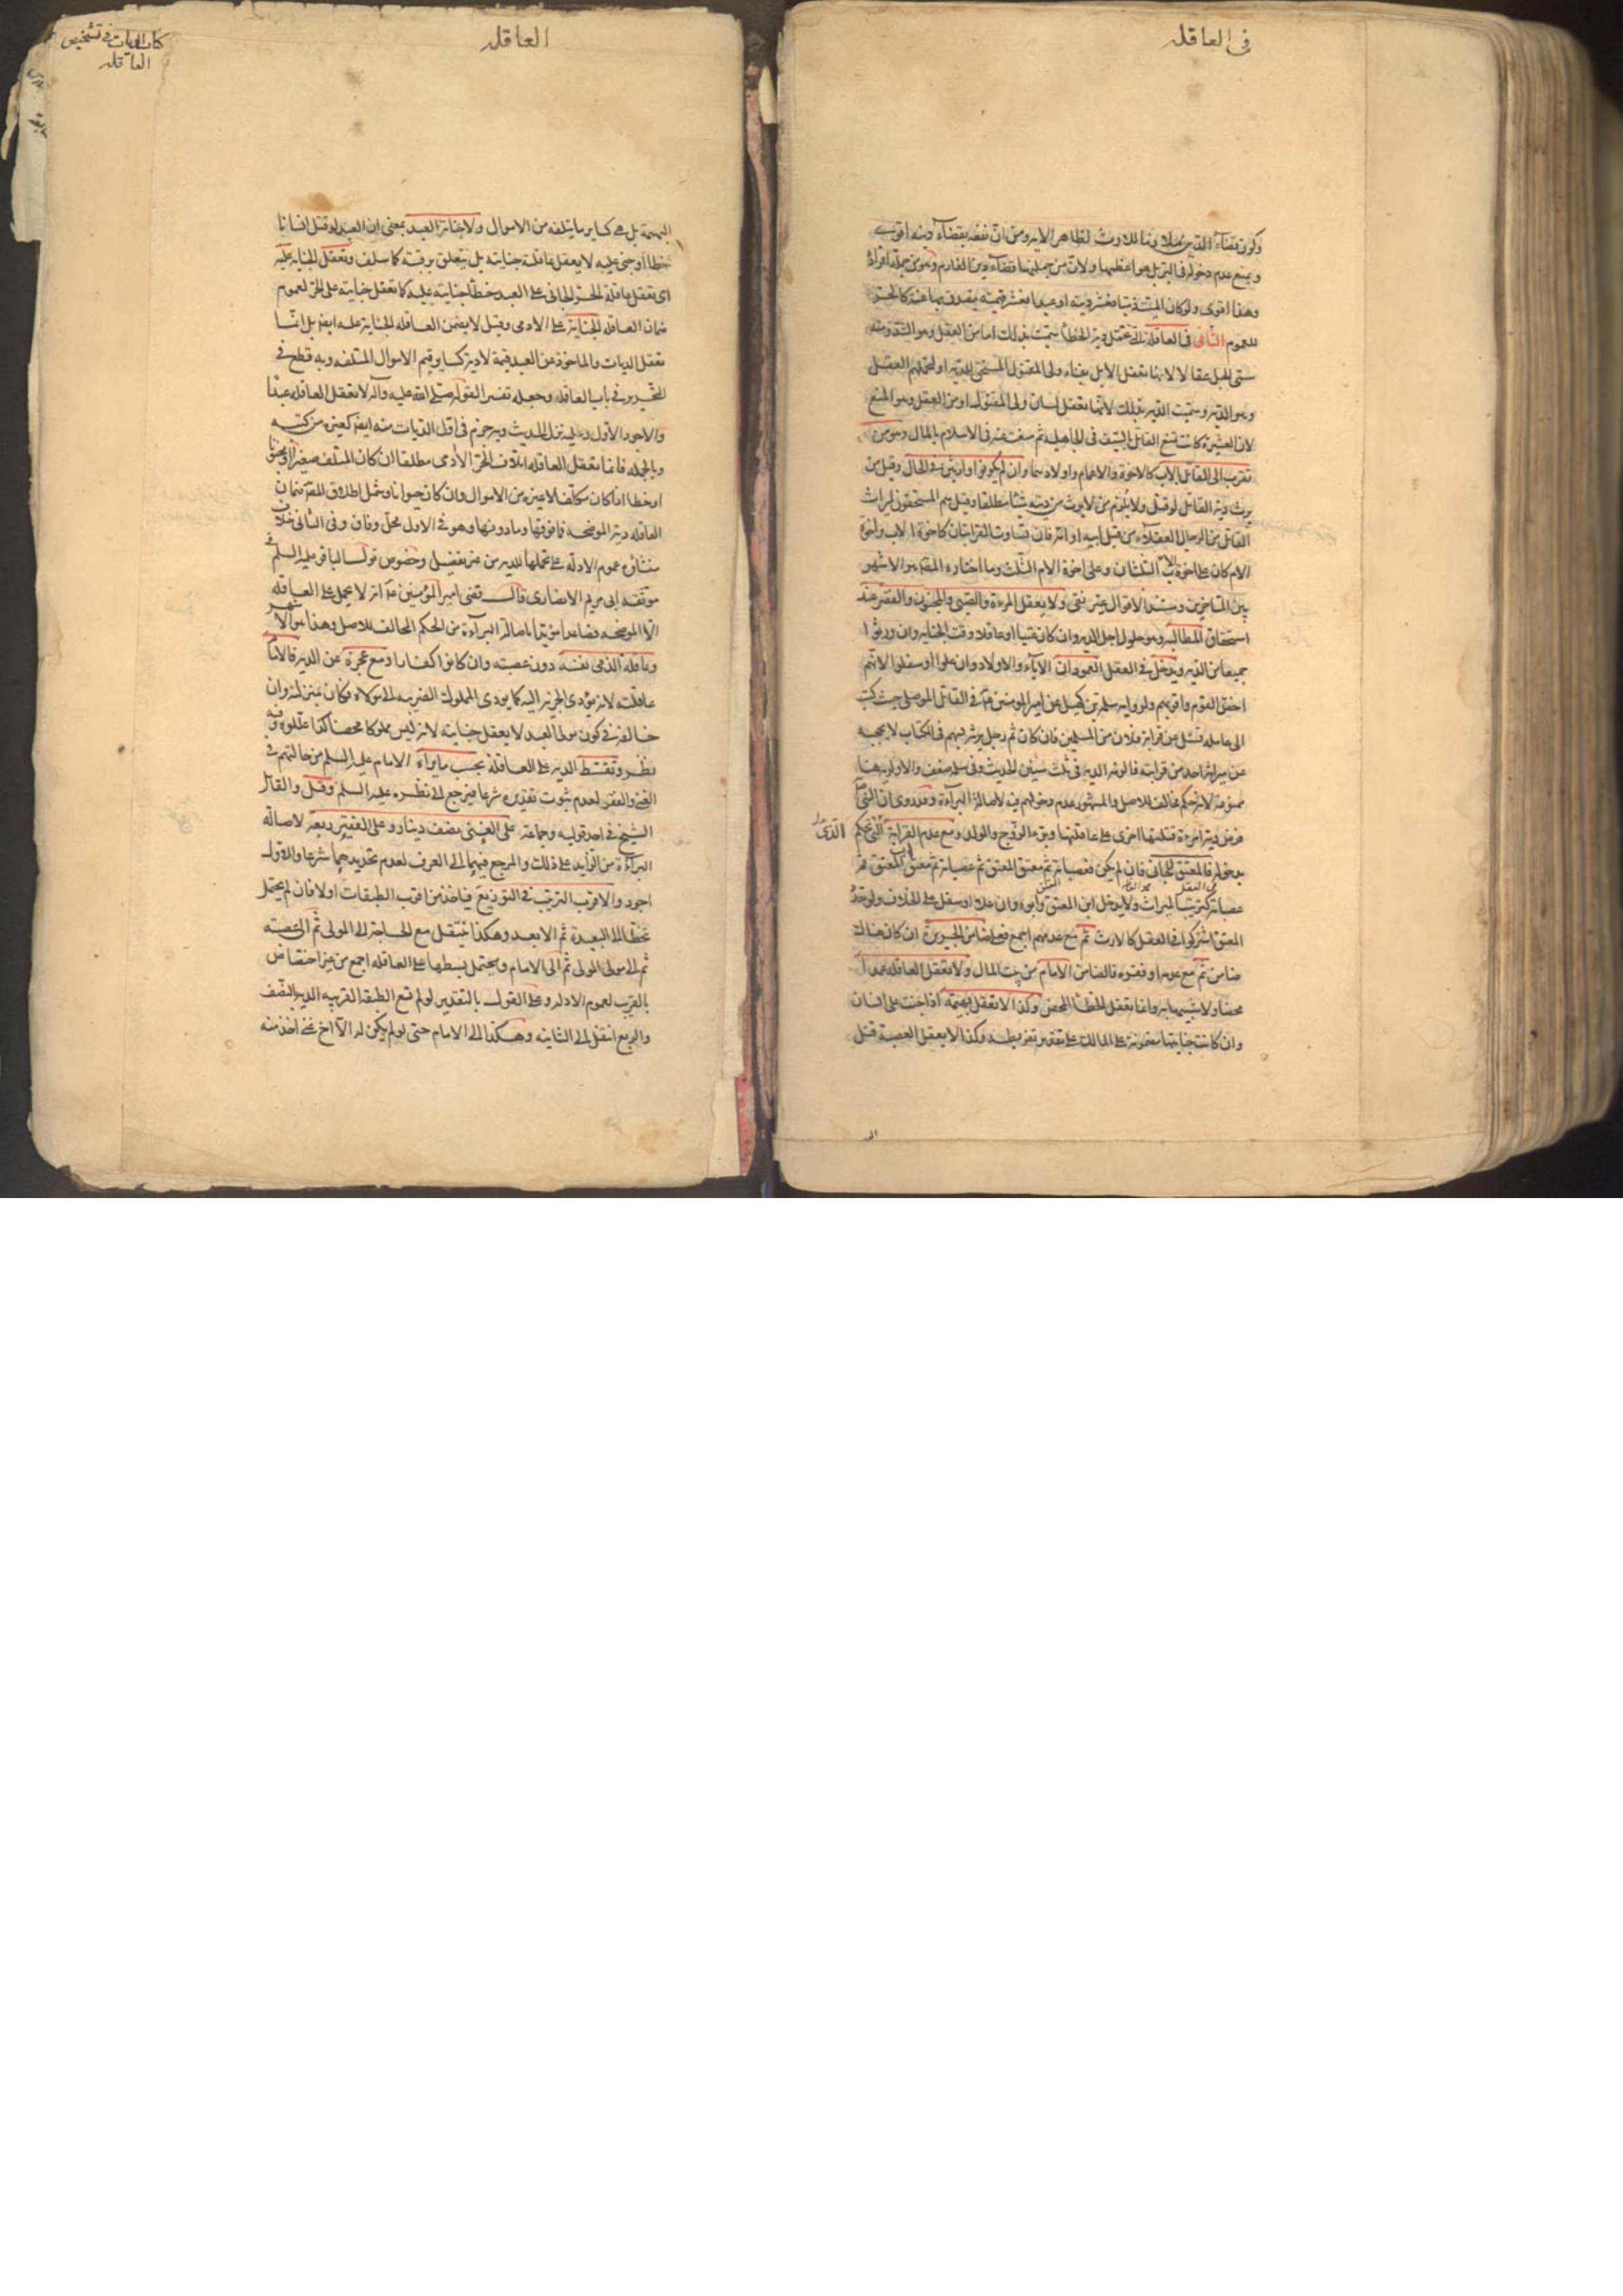 في العاقله
وكون قضاء الدين ملازما للارث لظاهر الاية ومن ان نفعه بقضاء دينه اقوى
ويمنع عدم دخوله في البر بل هو اعظمها ولان من جملتها قضاء دين الغارم وهو من جملة افراده
وهذا اقوى ولو كان الميت ذميا فعشر ديته او عبدا فعشر قيمته ويتصدق بها عنه كالحر
للعموم الثاني في العاقلة التي تحمل دية الخطأ سميت بذلك اما من العقل وهو الشد ومنه
سمى الحبل عقالا لانها تعقل الابل بفناء ولى المقتول المستحق للدية او لتحملهم العقل
وهو الدية وسميت الدية بذلك لانها تعقل لسان ولى المقتول او من العقل وهو المنع
لان العشيرة كانت تمنع القاتل بالسيف في الجاهلية ثم منعت عنه في الاسلام بالمال وهو من
تقرب الى القاتل بالاب كالاخوة والاعمام واولادهما وان لم يكونوا وارثين في الحال وقيل من
يرث دية القاتل لو قتل ولا يلزم من لا يرث من ديته شيئا مطلقا وقيل هم المستحقون لميراث
القاتل من الرجال العقلاء من قبل ابيه او امه فان تساوت القرابتان كاخوة الاب واخوة
الام كان على اخوة الاب الثلثان وعلى اخوة الام الثلث وما اختاره المصنف هو الاشهر
بين المتاخرين ومستند الاقوال غير نقى ولا يعقل المرءة والصبى والمجنون والفقير عند
استحقاق المطالبه وهو حلول اجل الدية وان كان غنيا او عاقلا وقت الجناية وان ورثوا
جميعا من الدية ويدخل في العقل العمودان الاباء والاولاد وان علوا او سفلوا لانهم
اخص القوم واقربهم ولرواية سلمة بن كهيل عن امير المومنين ع في القاتل الموصلى حيث كتب
الى عامله يسئل عن قرابة فلان من المسلمين فان كان ثم رجل يرثه له سهم في الكتاب لا يحجبه
عن ميراثه احد من قرابته فالزمه الدية في ثلث سنين الحديث وفي سلمة ضعف والاولوية هنا
ممنوعة لانه حكم مخالف للاصل والمشهور عدم دخولهم فيه لاصالة البراءة وقد روى ان النبي ص
فرض دية امرءة قتلتها اخرى على عاقلتها وبرء الزوج والولد ومع عدم القرابة التي تحكم
بدخوله فالمعتق للجانى فان لم يكن فعصباته ثم معتق المعتق ثم عصباته ثم معتق اب المعتق ثم
عصباته كترتيب الميراث ولا يدخل ابن المعتق وابوه وان علا او سفل على الخلاف ولو تعدد
المعتق اشتركوا في العقل كالارث ثم مع عدمهم اجمع فعلى ضامن الجريرة ان كان هناك
ضامن ثم مع عدمه او فقره فالضامن الامام من بيت المال ولا تعقل العاقله عمدا
محضا ولا شبيها به وانما تعقل الخطأ المحض وكذا لا تعقل بهيمة اذا جنت على انسان
وان كانت جنايتها مضمونة على المالك على تقدير تفريطه وكذا لا يعقل العصبة قتل
العاقله
كتاب الديات في تشخيص
العاقله
البهيمة بل هي كساير ما يتلفه من الاموال ولا جناية العبد بمعنى ان العبد لو قتل انسانا
خطأ او جنى عليه لا يعقل عاقلته جنايته بل يتعلق برقبته كما سلف وتعقل الجناية عليه
اى تعقل عاقلة الحر الجاني على العبد خطأ جنايته عليه كما تعقل جنايته على الحر لعموم
ضمان العاقله الجناية على الادمى وقيل لا يضمن العاقله الجناية عليه ايضا بل انما
تعقل الديات والماخوذ عن العبد قيمة لا دية كساير قيم الاموال المتلفه وبه قطع في
التحرير في باب العاقله وجعله تفسيرا لقوله صلى الله عليه وآله لا تعقل العاقله عبدا
والاجود الاول وعليه نزل الحديث وبه جزم في اول الديات منه ايضا كغيره من كتبه
وبالجمله فانما تعقل العاقله اتلاف الحر الادمى مطلقا ان كان المتلف صغيرا او مجنونا
او خطأ ان كان مكلفا لا غيره من الاموال وان كان حيوانا وشمل اطلاق المصنف ضمان
العاقله دية الموضحه فما فوقها وما دونها وهو في الاول محل وفاق وفي الثاني خلاف
منشاؤه عموم الادلة على تحملها للدية من غير تفصيل وخصوص قول الباقر عليه السلم في
موثقة ابى مريم الانصارى قال قضى امير المؤمنين ع انه لا يحمل على العاقله
الا الموضحه فصاعدا مؤيدا باصالة البراءة من الحكم المخالف للاصل وهذا هو الاشهر
وعاقلة الذمى نفسه دون عصبته وان كانوا كفارا ومع عجزه عن الدية فالامام
عاقلته لانه يؤدى الجزية اليه كما يودى المملوك الضريبه الى مولاه فكان بمنزلته وان
خالفه في كون مولى العبد لا يعقل جنايته لانه ليس مملوكا محضا كذا عللوه وفيه
نظر وتقسط الدية على العاقلة بحسب ما يراه الامام عليه السلم من حالتهم في
الغنى والفقر لعدم ثبوت تقديره شرعا فيرجع الى نظره عليه السلم وقيل والقائل
الشيخ في احد قوليه وجماعة على الغنى نصف دينار وعلى الفقير ربعه لاصالة
البراءة من الزايد على ذلك والمرجع فيهما الى العرف لعدم تحديدهما شرعا والاول
اجود والاقرب الترتيب في التوزيع فياخذ من اقرب الطبقات اولا فان لم يحتمل
تخطا الى البعيدة ثم الابعد وهكذا ينتقل مع الحاجة الى المولى ثم الى عصبته
ثم الى مولى المولى ثم الى الامام ويحتمل بسطها على العاقله اجمع من غير اختصاص
بالقريب لعموم الادله وعلى القول بالتقدير لو لم تسع الطبقة القريبه الدية بالنصف
والربع انتقل الى الثانيه وهكذا الى الامام حتى لو لم يكن له الا اخ غنى اخذ منه